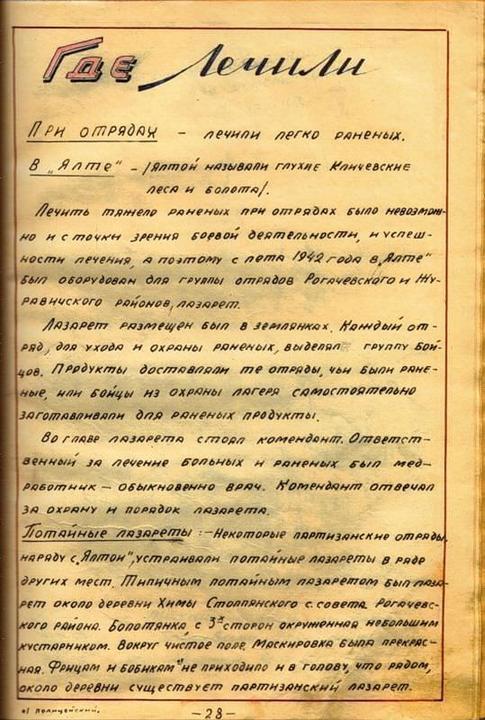 Где лечили
При отрядах – лечили легко раненых.
В „Ялте" – /Ялтой называли глухие Кличевские
леса и болота/.
Лечить тяжело раненых при отрядах было невозмож-
но и с точки зрения боевой деятельности, и успеш-
ности лечения, а поэтому с лета 1942 года в „Ялте"
был оборудован для группы отрядов Рогачевского и Жу-
равичского районов, лазарет.
Лазарет размещен был в землянках. Каждый от-
ряд, для ухода и охраны раненых, выделял группу бой-
цов. Продукты доставляли те отряды, чьи были ране-
ные, или бойцы из охраны лагеря самостоятельно
заготавливали для раненых продукты.
Во главе лазарета стоял комендант. Ответст-
венный за лечение больных и раненых был мед-
работник – обыкновенно врач. Комендант отвечал
за охрану и порядок лазарета.
Потайные лазареты: – Некоторые партизанские отряды,
наряду с „Ялтой", устраивали потайные лазареты в ряде
других мест. Типичным потайным лазаретом был лаза-
рет около деревни Химы Столпянского с.совета Рогачевс-
кого района. Болотянка с 3х сторон окруженная небольшим
кустарником. Вокруг чистое поле. Маскировка была прекрас-
ная. Фрицам и бобикам*) не приходило и в голову, что рядом,
около деревни существует партизанский лазарет.
*/ полицейский.
–28–